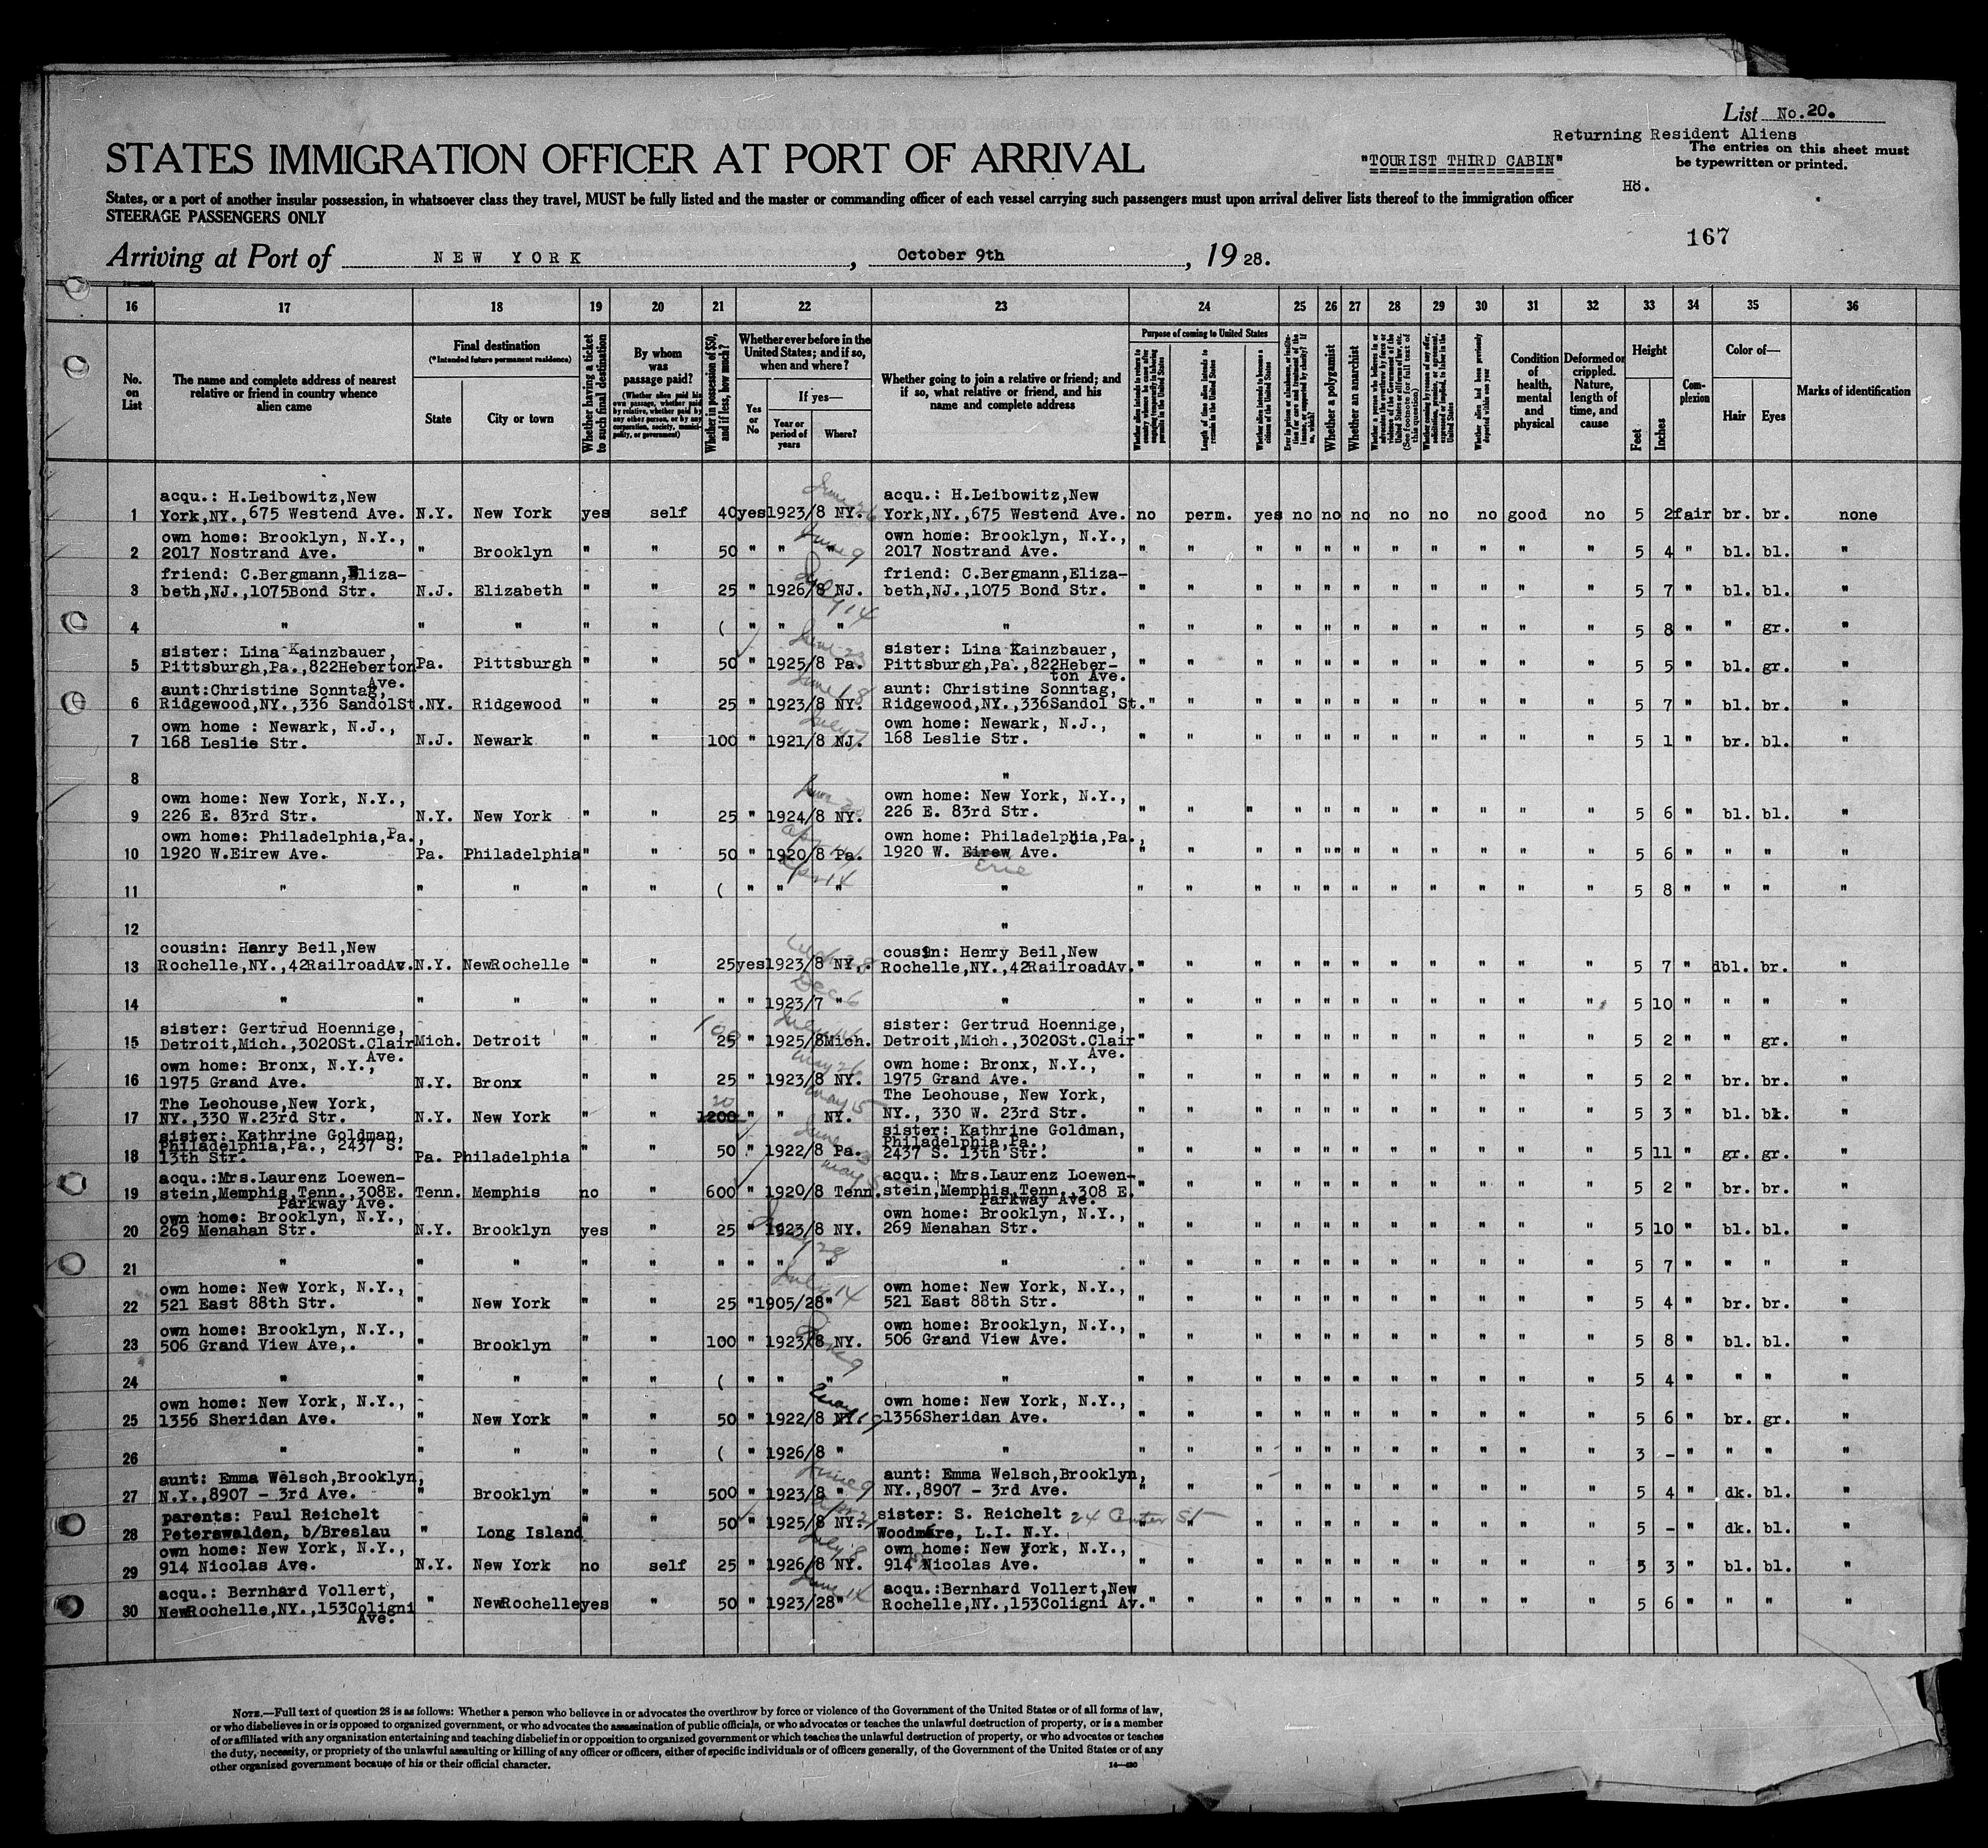 List No.20.
Returning Resident Aliens
The entries on this sheet must
be typewritten or printed.
STATES IMMIGRATION OFFICER AT PORT OF ARRIVAL
"TOURIST THIRD CABIN"
Hö.
States, or a port of another insular possession, in whatsoever class they travel, MUST be fully listed and the master or commanding officer of each vessel carrying such passengers must upon arrival deliver lists thereof to the immigration officer
STEERAGE PASSENGERS ONLY
167
Arriving at Port of NEW YORK, October 9th, 1928.
16 17 18 19 20 21 22 23 24 25 26 27 28 29 30 31 32 33 34 35 36
No. on List
The name and complete address of nearest relative or friend in country whence alien came
Final destination
(*Intended future permanent residence)
State
City or town
Whether having a ticket to such final destination
By whom was passage paid?
(Whether alien paid his own passage, whether paid by relative, whether paid by any other person, or by any corporation, society, municipality, or government)
Whether in possession of $50, and if less, how much?
Whether ever before in the United States; and if so, when and where?
Yes or No
If yes—
Year or period of years
Where?
Whether going to join a relative or friend; and if so, what relative or friend, and his name and complete address
Purpose of coming to United States
Length of time alien intends to remain in the United States
Whether alien intends to become a citizen of the United States
Whether a polygamist
Whether an anarchist
Condition of health, mental and physical
Deformed or crippled. Nature, length of time, and cause
Height
Feet
Inches
Complexion
Color of—
Hair
Eyes
Marks of identification
acqu.: H.Leibowitz,New acqu.: H.Leibowitz,New
1 York,NY.,675 Westend Ave. N.Y. New York yes self 40 yes 1923/8 NY. York,NY.,675 Westend Ave. no perm. yes no no no no no no good no 5 2 fair br. br. none
own home: Brooklyn, N.Y., June 9 own home: Brooklyn, N.Y.,
2 2017 Nostrand Ave. " Brooklyn " " 50 " " " 2017 Nostrand Ave. " " " " " " " " " " " 5 4 " bl. bl. "
friend: C.Bergmann,Eliza- friend: C.Bergmann,Eliza-
3 beth,NJ.,1075Bond Str. N.J. Elizabeth " " 25 " 1926/8 NJ. beth,NJ.,1075 Bond Str. " " " " " " " " " " " 5 7 " bl. bl. "
July 14
4 " " " " " ( " " " " " " " " " " " " " " " " 5 8 " " gr. "
sister: Lina Kainzbauer, June 23 sister: Lina Kainzbauer,
5 Pittsburgh,Pa.,822Heberton Pa. Pittsburgh " " 50 " 1925/8 Pa. Pittsburgh,Pa.,822Heber- " " " " " " " " " " " 5 5 " bl. gr. "
Ave. ton Ave.
aunt:Christine Sonntag, June 18 aunt: Christine Sonntag,
6 Ridgewood,NY.,336 SandolSt. NY. Ridgewood " " 25 " 1923/8 NY. Ridgewood,NY.,336Sandol St. " " " " " " " " " " " 5 7 " bl. br. "
own home : Newark, N.J., July 7 own home: Newark, N.J.,
7 168 Leslie Str. N.J. Newark " " 100 " 1921/8 NJ. 168 Leslie Str. " " " " " " " " " " " 5 1 " br. bl. "
8 "
own home: New York, N.Y., own home: New York, N.Y.,
9 226 E. 83rd Str. N.Y. New York " " 25 " 1924/8 NY. 226 E. 83rd Str. " " " " " " " " " " " 5 6 " bl. bl. "
own home: Philadelphia,Pa., own home: Philadelphia,Pa.,
10 1920 W.Eirew Ave. Pa. Philadelphia " " 50 " 1920/8 Pa. 1920 W. Eirew Ave. " " " " " " " " " " " 5 6 " " " "
Apr 14 Erie
11 " " " " " ( " " " " " " " " " " " " " " " " 5 8 " " " "
12 "
cousin: Henry Beil,New cousin: Henry Beil,New
13 Rochelle,NY.,42RailroadAv. N.Y. NewRochelle " " 25 yes 1923/8 NY,. Rochelle,NY.,42RailroadAv. " " " " " " " " " " " 5 7 " dbl. br. "
Dec 6
14 " " " " " " " 1923/7 " " " " " " " " " " " " " " 5 10 " " " "
sister: Gertrud Hoennige, 100 sister: Gertrud Hoennige,
15 Detroit,Mich.,3020St.Clair Mich. Detroit " " 25 " 1925/8Mich. Detroit,Mich.,3020St.Clair " " " " " " " " " " " 5 2 " " gr. "
Ave. May 26 Ave.
own home: Bronx, N.Y., own home: Bronx, N.Y.,
16 1975 Grand Ave. N.Y. Bronx " " 25 " 1923/8 NY. 1975 Grand Ave. " " " " " " " " " " " 5 2 " br. br. "
The Leohouse,New York, 20 May 15 The Leohouse, New York,
17 NY.,330 W.23rd Str. N.Y. New York " " 1200 " " NY. NY., 330 W. 23rd Str. " " " " " " " " " " " 5 3 " bl. bk. "
sister: Kathrine Goldman, sister: Kathrine Goldman,
Philadelphia,Pa., 2437 S. Philadelphia,Pa.,
18 13th Str. Pa. Philadelphia " " 50 " 1922/8 Pa. 2437 S. 13th Str. " " " " " " " " " " " 5 11 " gr. gr. "
acqu.:Mrs.Laurenz Loewen- acqu.: Mrs.Laurenz Loewen-
19 stein,Memphis,Tenn.,308E. Tenn. Memphis no " 600 " 1920/8 Tenn. stein,Memphis,Tenn.,308 E. " " " " " " " " " " " 5 2 " br. br. "
Parkway Ave. Parkway Ave.
own home: Brooklyn, N.Y., own home: Brooklyn, N.Y.,
20 269 Menahan Str. N.Y. Brooklyn yes " 25 " 1923/8 NY. 269 Menahan Str. " " " " " " " " " " " 5 10 " bl. bl. "
21 " " " " " " " " " " " " " " " " " " " " " " 5 7 " " " "
own home: New York, N.Y., July 14 own home: New York, N.Y.,
22 521 East 88th Str. " New York " " 25 " 1905/28" 521 East 88th Str. " " " " " " " " " " " 5 4 " br. br. "
own home: Brooklyn, N.Y., own home: Brooklyn, N.Y.,
23 506 Grand View Ave,. " Brooklyn " " 100 " 1923/8 NY. 506 Grand View Ave. " " " " " " " " " " " 5 8 " bl. bl. "
June 9
24 " " " " " ( " " " " " " " " " " " " " " " " 5 4 " " " "
own home: New York, N.Y., May 19 own home: New York, N.Y.,
25 1356 Sheridan Ave. " New York " " 50 " 1922/8 NY. 1356Sheridan Ave. " " " " " " " " " " " 5 6 " br. gr. "
26 " " " " " ( " 1926/8 " " " " " " " " " " " " " " 3 - " " " "
aunt: Emma Welsch,Brooklyn, June 9 aunt: Emma Welsch,Brooklyn,
27 N.Y.,8907 - 3rd Ave. " Brooklyn " " 500 " 1923/8 " NY.,8907 - 3rd Ave. " " " " " " " " " " " 5 4 " dk. bl. "
parents: Paul Reichelt sister: S. Reichelt 24 Center St
28 Peterswalden, b/Breslau " Long Island " " 50 " 1925/8 NY. Woodmere, L.I. N.Y. " " " " " " " " " " " 5 - " dk. bl. "
own home: New York, N.Y., July 8 own home: New York, N.Y.,
29 914 Nicolas Ave. N.Y. New York no self 25 " 1926/8 NY. 914 Nicolas Ave. " " " " " " " " " " " 5 3 " bl. bl. "
acqu.: Bernhard Vollert, June 14 acqu.:Bernhard Vollert,New
30 NewRochelle,NY.,153Coligni " NewRochelle yes " 50 " 1923/28" Rochelle,NY.,153Coligni Av. " " " " " " " " " " " 5 6 " " " "
Ave.
NOTE.—Full text of question 28 is as follows: Whether a person who believes in or advocates the overthrow by force or violence of the Government of the United States or of all forms of law,
or who disbelieves in or is opposed to organized government, or who advocates the assassination of public officials, or who advocates or teaches the unlawful destruction of property, or is a member
of or affiliated with any organization entertaining and teaching disbelief in or opposition to organized government or which teaches the unlawful destruction of property, or who advocates or teaches
the duty, necessity, or propriety of the unlawful assaulting or killing of any officer or officers, either of specific individuals or of officers generally, of the Government of the United States or of any
other organized government because of his or their official character.
14—430